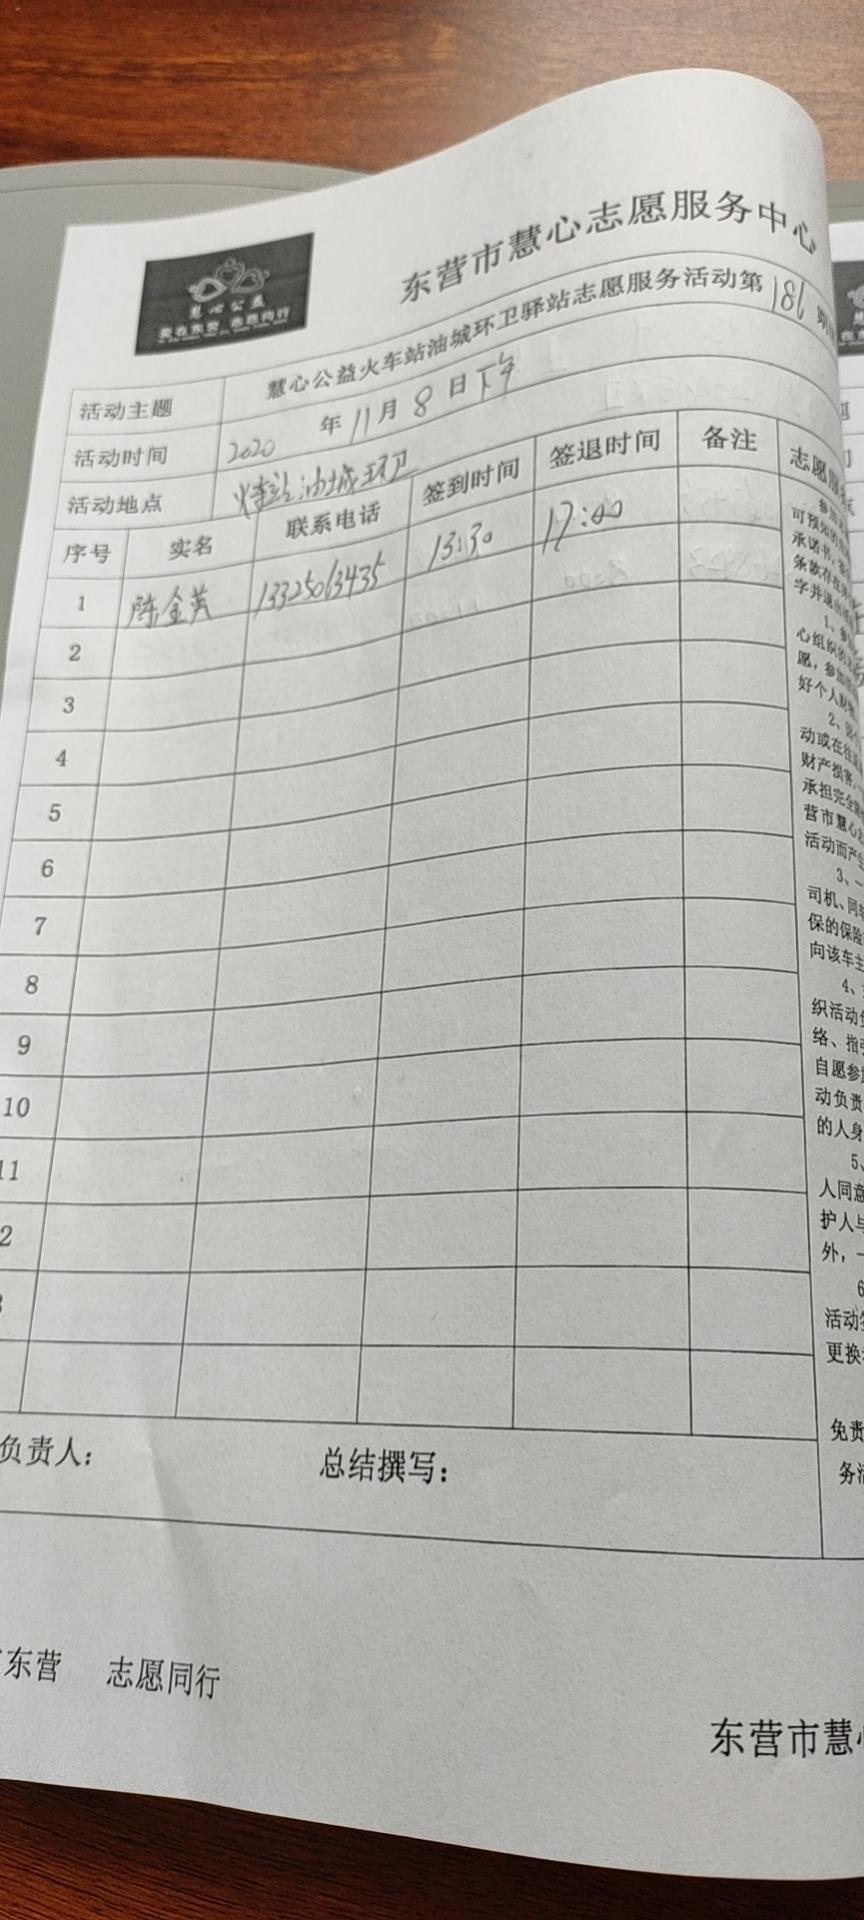 东营市慧心志愿服务中心
慧心公益
爱在东营 志愿同行
活动主题 慧心公益火车站油城环卫驿站志愿服务活动第181期
活动时间 2020 年 11 月 8 日下午
活动地点 火车站油城环卫
序号 实名 联系电话 签到时间 签退时间 备注
1 陈金英 13325063435 13:30 17:00
2
3
4
5
6
7
8
9
10
11
2
负责人： 总结撰写：
东营 志愿同行
志愿服
可预知的
承诺书，
条款存在
字并退出
1、参
心组织的
愿，参加
好个人财
2、因个
动或在往返
财产损害，
承担完全
营市慧心志
活动而产生
3、一
司机、同车
保的保险
向该车主
4、
织活动
络、指引
自愿参加
动负责
的人身
5、
人同意
护人与
外，一
6
活动签
更换
免责
务活
东营市慧心